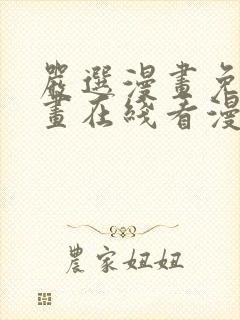 嚴選漫畫免
畫在綫看漫
農家妞妞